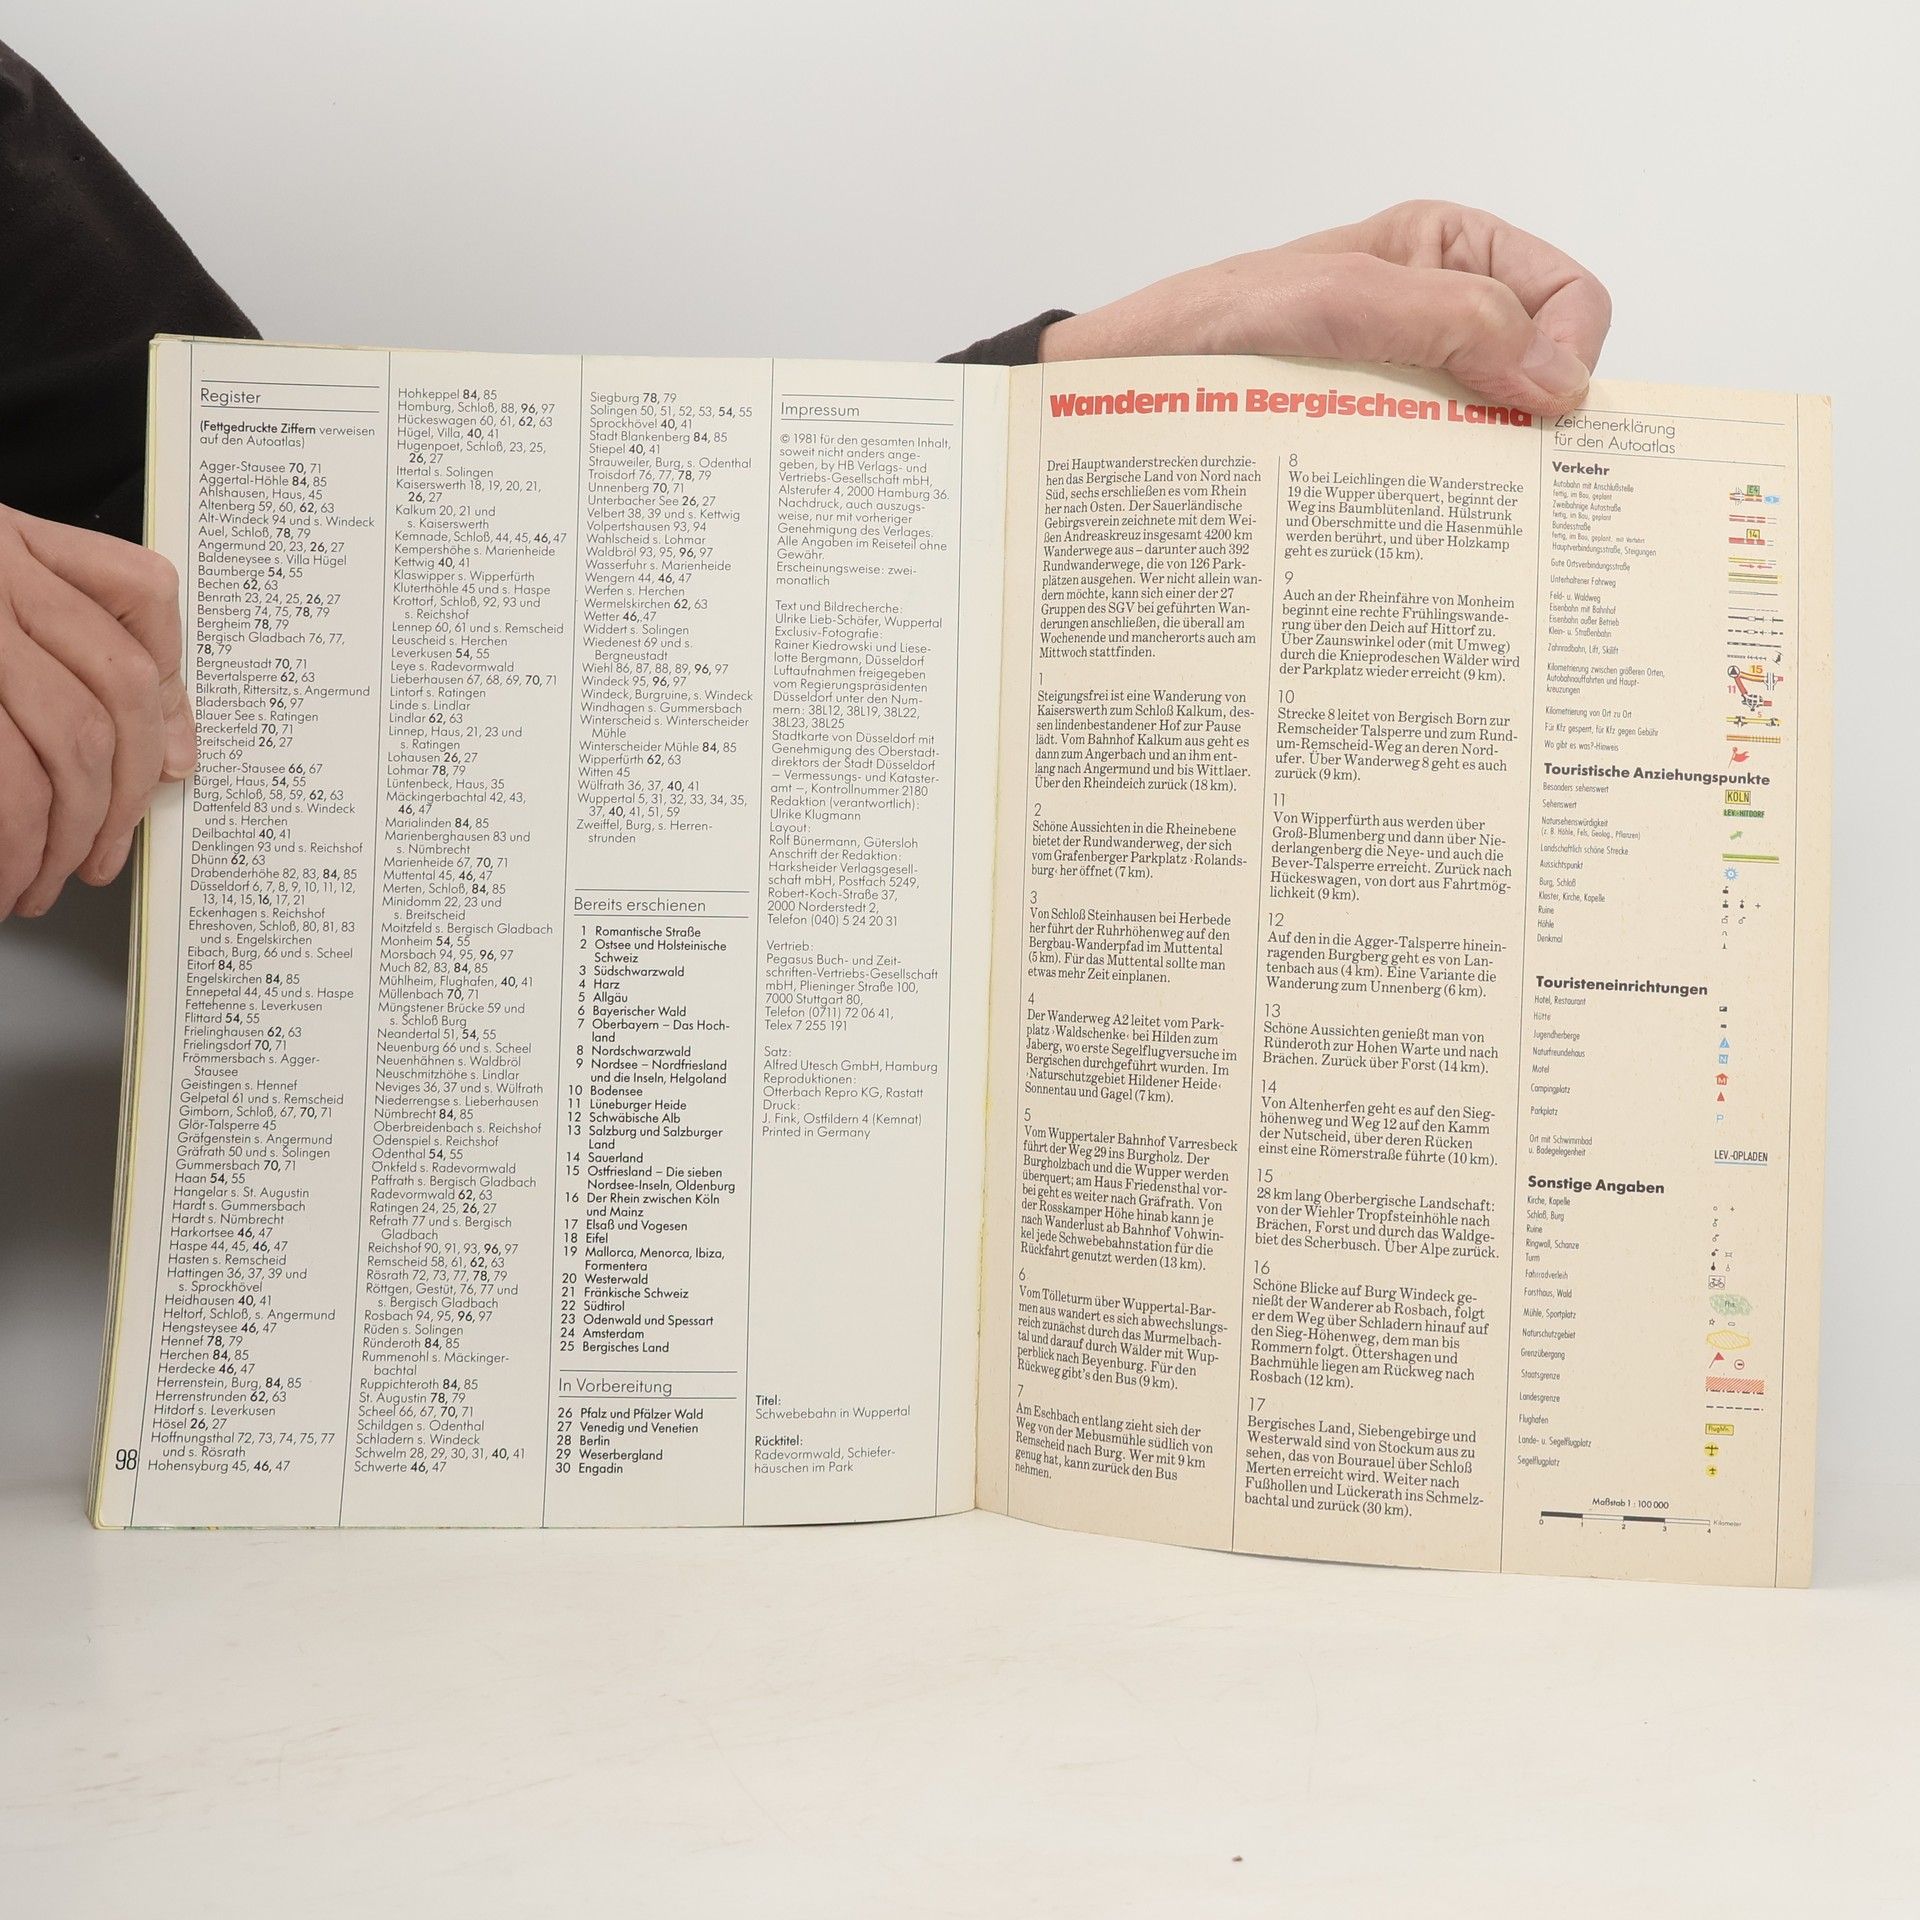 Register
(Fettgedruckte Ziffern verweisen
auf den Autoatlas)
Agger-Stausee 70, 71
Aggertal-Höhle 84, 85
Ahlshausen, Haus, 45
Altenberg 59, 60, 62, 63
Alt-Windeck 94 und s. Windeck
Auel, Schloß, 78, 79
Angermund 20, 23, 26, 27
Baldeneysee s. Villa Hügel
Baumberge 54, 55
Bechen 62, 63
Benrath 23, 24, 25, 26, 27
Bensberg 74, 75, 78, 79
Bergheim 78, 79
Bergisch Gladbach 76, 77,
78, 79
Bergneustadt 70, 71
Bevertalsperre 62, 63
Bilkrath, Rittersitz, s. Angermund
Bladersbach 96, 97
Blauer See s. Ratingen
Breckerfeld 70, 71
Breitscheid 26, 27
Bruch 69
Brucher-Stausee 66, 67
Bürgel, Haus, 54, 55
Burg, Schloß, 58, 59, 62, 63
Dattenfeld 83 und s. Windeck
und s. Herchen
Deilbachtal 40, 41
Denklingen 93 und s. Reichshof
Dhünn 62, 63
Drabenderhöhe 82, 83, 84, 85
Düsseldorf 6, 7, 8, 9, 10, 11, 12,
13, 14, 15, 16, 17, 21
Eckenhagen s. Reichshof
Ehreshoven, Schloß, 80, 81, 83
und s. Engelskirchen
Eibach, Burg, 66 und s. Scheel
Eitorf 84, 85
Engelskirchen 84, 85
Ennepetal 44, 45 und s. Haspe
Fettehenne s. Leverkusen
Flittard 54, 55
Frielinghausen 62, 63
Frielingsdorf 70, 71
Frömmersbach s. Agger-
Stausee
Geistingen s. Hennef
Gelpetal 61 und s. Remscheid
Gimborn, Schloß, 67, 70, 71
Glör-Talsperre 45
Gräfgenstein s. Angermund
Gräfrath 50 und s. Solingen
Gummersbach 70, 71
Haan 54, 55
Hangelar s. St. Augustin
Hardt s. Gummersbach
Hardt s. Nümbrecht
Harkortsee 46, 47
Haspe 44, 45, 46, 47
Hasten s. Remscheid
Hattingen 36, 37, 39 und
s. Sprockhövel
Heidhausen 40, 41
Heltorf, Schloß, s. Angermund
Hengsteysee 46, 47
Hennef 78, 79
Herchen 84, 85
Herdecke 46, 47
Herrenstein, Burg, 84, 85
Herrenstrunden 62, 63
Hitdorf s. Leverkusen
Hösel 26, 27
Hoffnungsthal 72, 73, 74, 75, 77
und s. Rösrath
Hohensyburg 45, 46, 47
98
Hohkeppel 84, 85
Homburg, Schloß, 88, 96, 97
Hückeswagen 60, 61, 62, 63
Hügel, Villa, 40, 41
Hugenpoet, Schloß, 23, 25,
26, 27
Ittertal s. Solingen
Kaiserswerth 18, 19, 20, 21,
26, 27
Kalkum 20, 21 und
s. Kaiserswerth
Kemnade, Schloß, 44, 45, 46, 47
Kempershöhe s. Marienheide
Kettwig 40, 41
Klaswipper s. Wipperfürth
Kluterthöhle 45 und s. Haspe
Krottorf, Schloß, 92, 93 und
s. Reichshof
Lennep 60, 61 und s. Remscheid
Leuscheid s. Herchen
Leverkusen 54, 55
Leye s. Radevormwald
Lieberhausen 67, 68, 69, 70, 71
Lintorf s. Ratingen
Linde s. Lindlar
Lindlar 62, 63
Linnep, Haus, 21, 23 und
s. Ratingen
Lohausen 26, 27
Lohmar 78, 79
Lüntenbeck, Haus, 35
Mäckingerbachtal 42, 43,
46, 47
Marialinden 84, 85
Marienberghausen 83 und
s. Nümbrecht
Marienheide 67, 70, 71
Muttental 45, 46, 47
Merten, Schloß, 84, 85
Minidomm 22, 23 und
s. Breitscheid
Moitzfeld s. Bergisch Gladbach
Monheim 54, 55
Morsbach 94, 95, 96, 97
Much 82, 83, 84, 85
Mühlheim, Flughafen, 40, 41
Müllenbach 70, 71
Müngstener Brücke 59 und
s. Schloß Burg
Neandertal 51, 54, 55
Neuenburg 66 und s. Scheel
Neuenhähnen s. Waldbröl
Neuschmitzhöhe s. Lindlar
Neviges 36, 37 und s. Wülfrath
Niederrengse s. Lieberhausen
Nümbrecht 84, 85
Oberbreidenbach s. Reichshof
Odenspiel s. Reichshof
Odenthal 54, 55
Önkfeld s. Radevormwald
Paffrath s. Bergisch Gladbach
Radevormwald 62, 63
Ratingen 24, 25, 26, 27
Refrath 77 und s. Bergisch
Gladbach
Reichshof 90, 91, 93, 96, 97
Remscheid 58, 61, 62, 63
Rösrath 72, 73, 77, 78, 79
Röttgen, Gestüt, 76, 77 und
s. Bergisch Gladbach
Rosbach 94, 95, 96, 97
Rüden s. Solingen
Ründeroth 84, 85
Rummenohl s. Mäckinger-
bachtal
Ruppichteroth 84, 85
St. Augustin 78, 79
Scheel 66, 67, 70, 71
Schildgen s. Odenthal
Schladern s. Windeck
Schwelm 28, 29, 30, 31, 40, 41
Schwerte 46, 47
Siegburg 78, 79
Solingen 50, 51, 52, 53, 54, 55
Sprockhövel 40, 41
Stadt Blankenberg 84, 85
Stiepel 40, 41
Strauweiler, Burg, s. Odenthal
Troisdorf 76, 77, 78, 79
Unnenberg 70, 71
Unterbacher See 26, 27
Velbert 38, 39 und s. Kettwig
Volpertshausen 93, 94
Wahlscheid s. Lohmar
Waldbröl 93, 95, 96, 97
Wasserfuhr s. Marienheide
Wengern 44, 46, 47
Werfen s. Herchen
Wermelskirchen 62, 63
Wetter 46, 47
Widdert s. Solingen
Wiedenest 69 und s.
Bergneustadt
Wiehl 86, 87, 88, 89, 96, 97
Windeck 95, 96, 97
Windeck, Burgruine, s. Windeck
Windhagen s. Gummersbach
Winterscheid s. Winterscheider
Mühle
Winterscheider Mühle 84, 85
Wipperfürth 62, 63
Witten 45
Wülfrath 36, 37, 40, 41
Wuppertal 5, 31, 32, 33, 34, 35,
37, 40, 41, 51, 59
Zweiffel, Burg, s. Herren-
strunden
Bereits erschienen
1 Romantische Straße
2 Ostsee und Holsteinische
Schweiz
3 Südschwarzwald
4 Harz
5 Allgäu
6 Bayerischer Wald
7 Oberbayern – Das Hoch-
land
8 Nordschwarzwald
9 Nordsee – Nordfriesland
und die Inseln, Helgoland
10 Bodensee
11 Lüneburger Heide
12 Schwäbische Alb
13 Salzburg und Salzburger
Land
14 Sauerland
15 Ostfriesland – Die sieben
Nordsee-Inseln, Oldenburg
16 Der Rhein zwischen Köln
und Mainz
17 Elsaß und Vogesen
18 Eifel
19 Mallorca, Menorca, Ibiza,
Formentera
20 Westerwald
21 Fränkische Schweiz
22 Südtirol
23 Odenwald und Spessart
24 Amsterdam
25 Bergisches Land
In Vorbereitung
26 Pfalz und Pfälzer Wald
27 Venedig und Venetien
28 Berlin
29 Weserbergland
30 Engadin
Impressum
© 1981 für den gesamten Inhalt,
soweit nicht anders ange-
geben, by HB Verlags- und
Vertriebs-Gesellschaft mbH,
Alsterufer 4, 2000 Hamburg 36.
Nachdruck, auch auszugs-
weise, nur mit vorheriger
Genehmigung des Verlages.
Alle Angaben im Reiseteil ohne
Gewähr.
Erscheinungsweise: zwei-
monatlich
Text und Bildrecherche:
Ulrike Lieb-Schäfer, Wuppertal
Exclusiv-Fotografie:
Rainer Kiedrowski und Liese-
lotte Bergmann, Düsseldorf
Luftaufnahmen freigegeben
vom Regierungspräsidenten
Düsseldorf unter den Num-
mern: 38L12, 38L19, 38L22,
38L23, 38L25
Stadtkarte von Düsseldorf mit
Genehmigung des Oberstadt-
direktors der Stadt Düsseldorf
– Vermessungs- und Kataster-
amt –, Kontrollnummer 2180
Redaktion (verantwortlich):
Ulrike Klugmann
Layout:
Rolf Bünermann, Gütersloh
Anschrift der Redaktion:
Harksheider Verlagsgesell-
schaft mbH, Postfach 5249,
Robert-Koch-Straße 37,
2000 Norderstedt 2,
Telefon (040) 5 24 20 31
Vertrieb:
Pegasus Buch- und Zeit-
schriften-Vertriebs-Gesellschaft
mbH, Plieninger Straße 100,
7000 Stuttgart 80,
Telefon (0711) 72 06 41,
Telex 7 255 191
Satz:
Alfred Utesch GmbH, Hamburg
Reproduktionen:
Otterbach Repro KG, Rastatt
Druck:
J. Fink, Ostfildern 4 (Kemnat)
Printed in Germany
Titel:
Schwebebahn in Wuppertal
Rücktitel:
Radevormwald, Schiefer-
häuschen im Park
Wandern im Bergischen Land
Drei Hauptwanderstrecken durchzie-
hen das Bergische Land von Nord nach
Süd, sechs erschließen es vom Rhein
her nach Osten. Der Sauerländische
Gebirgsverein zeichnete mit dem Wei-
ßen Andreaskreuz insgesamt 4200 km
Wanderwege aus – darunter auch 392
Rundwanderwege, die von 126 Park-
plätzen ausgehen. Wer nicht allein wan-
dern möchte, kann sich einer der 27
Gruppen des SGV bei geführten Wan-
derungen anschließen, die überall am
Wochenende und mancherorts auch am
Mittwoch stattfinden.
1
Steigungsfrei ist eine Wanderung von
Kaiserswerth zum Schloß Kalkum, des-
sen lindenbestandener Hof zur Pause
lädt. Vom Bahnhof Kalkum aus geht es
dann zum Angerbach und an ihm ent-
lang nach Angermund und bis Wittlaer.
Über den Rheindeich zurück (18 km).
2
Schöne Aussichten in die Rheinebene
bietet der Rundwanderweg, der sich
vom Grafenberger Parkplatz ›Rolands-
burg‹ her öffnet (7 km).
3
Von Schloß Steinhausen bei Herbede
her führt der Ruhrhöhenweg auf den
Bergbau-Wanderpfad im Muttental
(5 km). Für das Muttental sollte man
etwas mehr Zeit einplanen.
4
Der Wanderweg A2 leitet vom Park-
platz ›Waldschenke‹ bei Hilden zum
Jaberg, wo erste Segelflugversuche im
Bergischen durchgeführt wurden. Im
›Naturschutzgebiet Hildener Heide‹
Sonnentau und Gagel (7 km).
5
Vom Wuppertaler Bahnhof Varresbeck
führt der Weg 29 ins Burgholz. Der
Burgholzbach und die Wupper werden
überquert; am Haus Friedensthal vor-
bei geht es weiter nach Gräfrath. Von
der Rosskamper Höhe hinab kann je
nach Wanderlust ab Bahnhof Vohwin-
kel jede Schwebebahnstation für die
Rückfahrt genutzt werden (13 km).
6
Vom Tölleturm über Wuppertal-Bar-
men aus wandert es sich abwechslungs-
reich zunächst durch das Murmelbach-
tal und darauf durch Wälder mit Wup-
perblick nach Beyenburg. Für den
Rückweg gibt's den Bus (9 km).
7
Am Eschbach entlang zieht sich der
Weg von der Mebusmühle südlich von
Remscheid nach Burg. Wer mit 9 km
genug hat, kann zurück den Bus
nehmen.
8
Wo bei Leichlingen die Wanderstrecke
19 die Wupper überquert, beginnt der
Weg ins Baumblütenland. Hülstrunk
und Oberschmitte und die Hasenmühle
werden berührt, und über Holzkamp
geht es zurück (15 km).
9
Auch an der Rheinfähre von Monheim
beginnt eine rechte Frühlingswande-
rung über den Deich auf Hittorf zu.
Über Zaunswinkel oder (mit Umweg)
durch die Knieprodeschen Wälder wird
der Parkplatz wieder erreicht (9 km).
10
Strecke 8 leitet von Bergisch Born zur
Remscheider Talsperre und zum Rund-
um-Remscheid-Weg an deren Nord-
ufer. Über Wanderweg 8 geht es auch
zurück (9 km).
11
Von Wipperfürth aus werden über
Groß-Blumenberg und dann über Nie-
derlangenberg die Neye- und auch die
Bever-Talsperre erreicht. Zurück nach
Hückeswagen, von dort aus Fahrtmög-
lichkeit (9 km).
12
Auf den in die Agger-Talsperre hinein-
ragenden Burgberg geht es von Lan-
tenbach aus (4 km). Eine Variante die
Wanderung zum Unnenberg (6 km).
13
Schöne Aussichten genießt man von
Ründeroth zur Hohen Warte und nach
Brächen. Zurück über Forst (14 km).
14
Von Altenherfen geht es auf den Sieg-
höhenweg und Weg 12 auf den Kamm
der Nutscheid, über deren Rücken
einst eine Römerstraße führte (10 km).
15
28 km lang Oberbergische Landschaft:
von der Wiehler Tropfsteinhöhle nach
Brächen, Forst und durch das Waldge-
biet des Scherbusch. Über Alpe zurück.
16
Schöne Blicke auf Burg Windeck ge-
nießt der Wanderer ab Rosbach, folgt
er dem Weg über Schladern hinauf auf
den Sieg-Höhenweg, dem man bis
Rommern folgt. Öttershagen und
Bachmühle liegen am Rückweg nach
Rosbach (12 km).
17
Bergisches Land, Siebengebirge und
Westerwald sind von Stockum aus zu
sehen, das von Bourauel über Schloß
Merten erreicht wird. Weiter nach
Fußhollen und Lückerath ins Schmelz-
bachtal und zurück (30 km).
Zeichenerklärung
für den Autoatlas
Verkehr
Autobahn mit Anschlußstelle
fertig, im Bau, geplant
Zweibahnige Autostraße
fertig, im Bau, geplant
Bundesstraße
fertig, im Bau, geplant, mit Vorfahrt
Hauptverbindungsstraße, Steigungen
Gute Ortsverbindungsstraße
Unterhaltener Fahrweg
Feld- u. Waldweg
Eisenbahn mit Bahnhof
Eisenbahn außer Betrieb
Klein- u. Straßenbahn
Zahnradbahn, Lift, Skilift
Kilometrierung zwischen größeren Orten,
Autobahnauffahrten und Haupt-
kreuzungen
15
11
Kilometrierung von Ort zu Ort
Für Kfz gesperrt, für Kfz gegen Gebühr
Wo gibt es was?-Hinweis
Touristische Anziehungspunkte
Besonders sehenswert
KÖLN
Sehenswert
LEV.-HITDORF
Natursehenswürdigkeit
(z. B. Höhle, Fels, Geolog., Pflanzen)
Landschaftlich schöne Strecke
Aussichtspunkt
Burg, Schloß
Kloster, Kirche, Kapelle
Ruine
Höhle
Denkmal
Touristeneinrichtungen
Hotel, Restaurant
Hütte
Jugendherberge
Naturfreundehaus
Motel
Campingplatz
Parkplatz
P
Ort mit Schwimmbad
u. Badegelegenheit
LEV.-OPLADEN
Sonstige Angaben
Kirche, Kapelle
Schloß, Burg
Ruine
Ringwall, Schanze
Turm
Fahrradverleih
Forsthaus, Wald
Fhs.
Mühle, Sportplatz
Naturschutzgebiet
Grenzübergang
Staatsgrenze
Landesgrenze
Flughafen
Lande- u. Segelflugplatz
Segelflugplatz
Maßstab 1 : 100 000
0 1 2 3 4 Kilometer